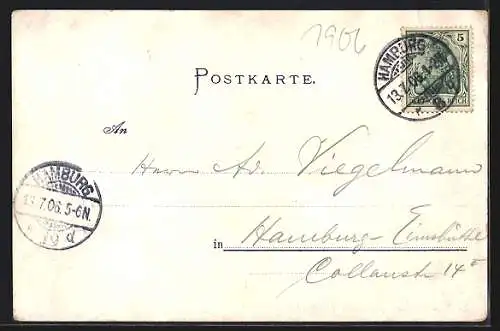 1906
5
HAMBURG
13.7.06.
POSTKARTE.
An
Herrn Ad. Viegelmann
HAMBURG
13.7.06.5-6N.
19 d
in Hamburg-Eimsbüttel
Collaustr 14